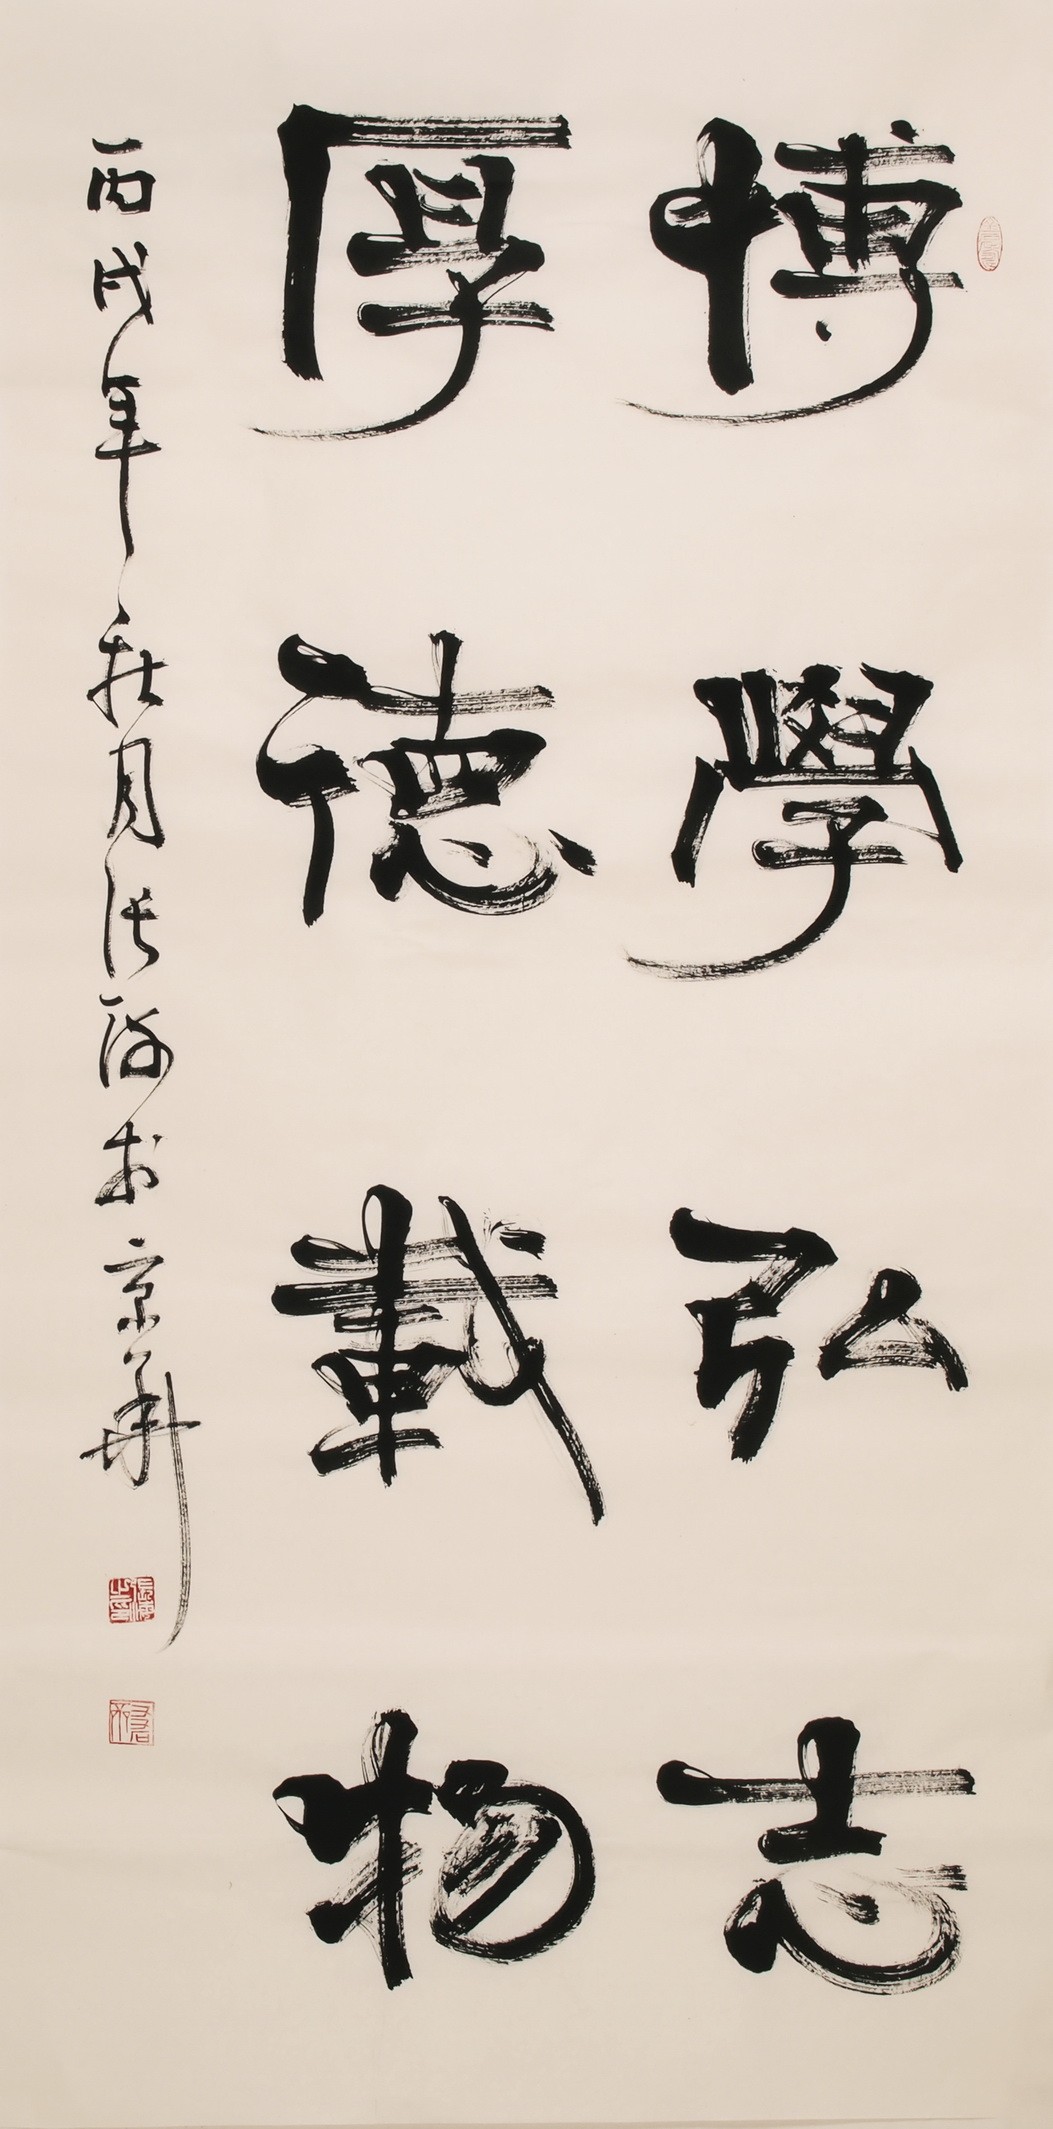 博學弘志
厚德載物
丙戌年秋月張海於京華